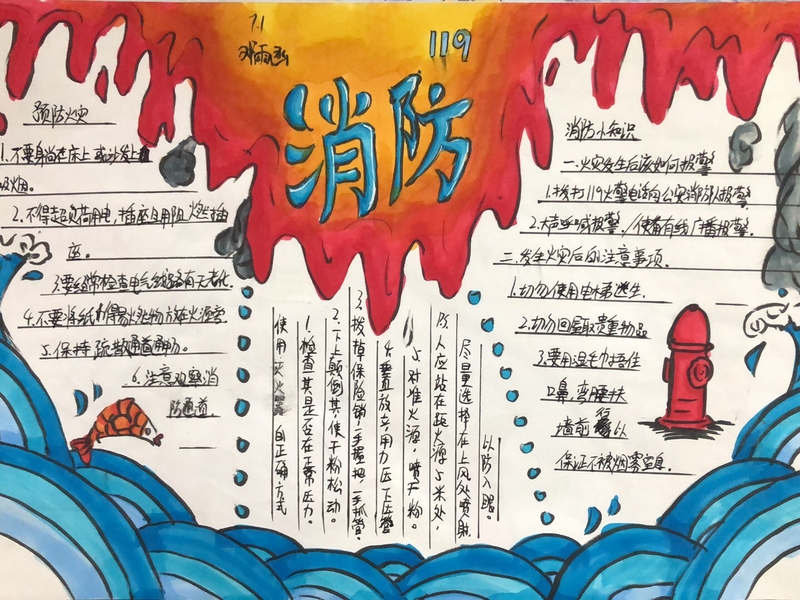 7.1
119
消防
预防火灾
1.不要躺在床上或沙发上
吸烟。
2.不得超负荷用电,插座宜用阻燃插
座。
3.要经常检查电气线路有无老化.
4.不要将纸
5.保持疏散通道畅通。
6.注意观察消
防通道.
使用灭火器的正确方式
1.检查其是否在正常压力。
2.上下颠倒其,使干粉松动。
3.拔掉保险销,一手握把,一手抓管.
4.垂直放立,用力压下压
5.对准火源,喷干粉。
6.人应站在距火源5米处,
尽量选择在上风处喷射
以防入眼。
消防小知识
一.火灾发生后该如何报警
1.拨打119火警电话向公安消防队报警
2.大声呼喊报警,使用有线广播报警.
二.发生火灾后的注意事项.
1.切勿使用电梯逃生.
2.切勿回屋取贵重物品
3.要用湿毛巾捂住
口鼻,弯腰扶
墙前行以
保证不被烟雾窒息.